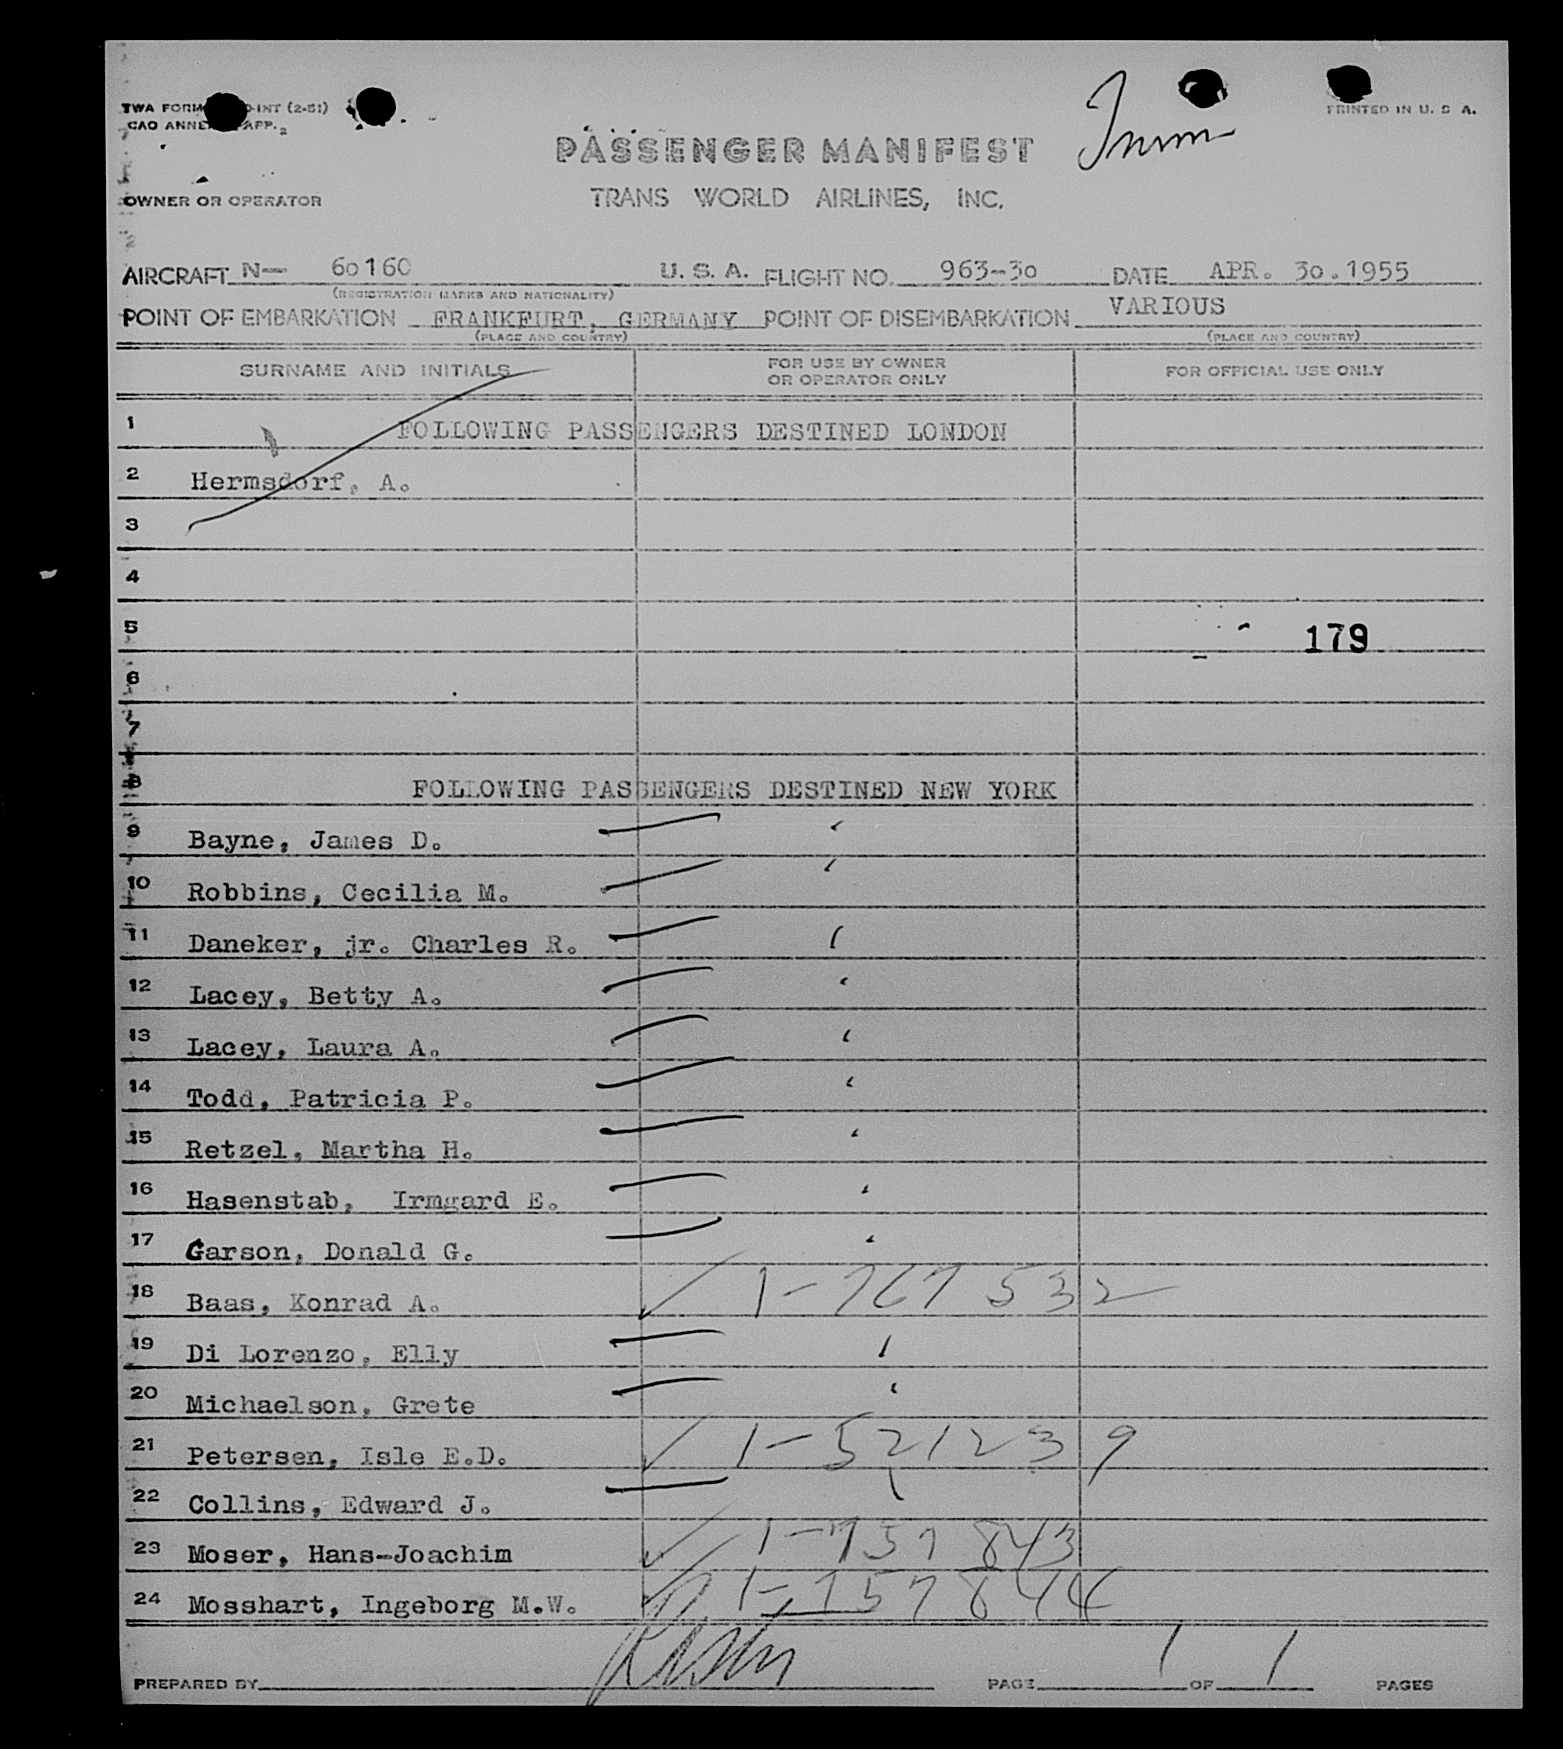 TWA FORM INT (2-51)
CAO ANNEX APP. 2
PRINTED IN U. S. A.
Imm
PASSENGER MANIFEST
OWNER OR OPERATOR
TRANS WORLD AIRLINES, INC.
AIRCRAFT N— 60160 U. S. A. FLIGHT NO. 963-30 DATE APR. 30.1955
(REGISTRATION MARKS AND NATIONALITY)
POINT OF EMBARKATION FRANKFURT, GERMANY POINT OF DISEMBARKATION VARIOUS
(PLACE AND COUNTRY) (PLACE AND COUNTRY)
SURNAME AND INITIALS FOR USE BY OWNER OR OPERATOR ONLY FOR OFFICIAL USE ONLY
1 FOLLOWING PASSENGERS DESTINED LONDON
2 Hermsdorf, A.
3
4
5 179
6
7
8 FOLLOWING PASSENGERS DESTINED NEW YORK
9 Bayne, James D.
10 Robbins, Cecilia M.
11 Daneker, jr. Charles R.
12 Lacey, Betty A.
13 Lacey, Laura A.
14 Todd, Patricia P.
15 Retzel, Martha H.
16 Hasenstab, Irmgard E.
17 Garson, Donald G.
18 Baas, Konrad A. ✓ 1-767 532
19 Di Lorenzo, Elly
20 Michaelson, Grete
21 Petersen, Isle E.D. ✓ 1-521239
22 Collins, Edward J.
23 Moser, Hans-Joachim ✓ 1-757 843
24 Mosshart, Ingeborg M.W. ✓ 1-757 844
PREPARED BY PAGE 1 OF 1 PAGES